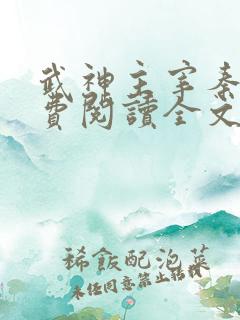 武神主宰秦
費閱讀全文
稀飯配泡菜
未經同意禁止轉載